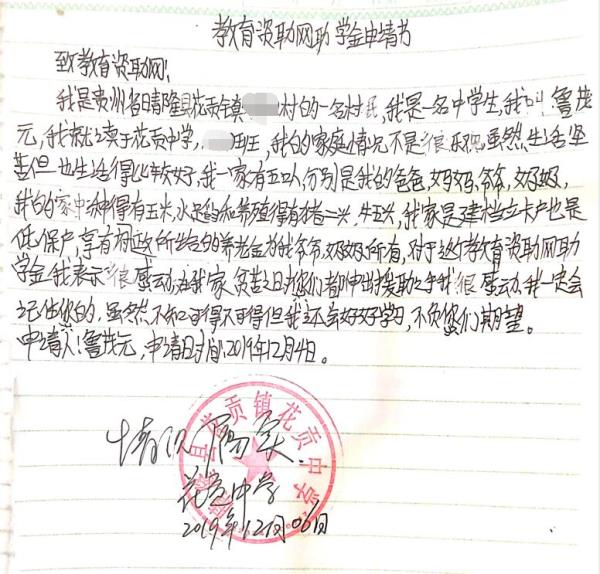 教育资助网助学金申请书
致教育资助网!
我是贵州省晴隆县花贡镇 村的一名村民,我是一名中学生,我叫鲁茂
元,我就读于花贡中学, 班,我的家庭情况不是很乐观虽然生活坚
苦但也生活得比较好,我一家有五口人分别是我的爸爸,妈妈,爷爷,奶奶,
我的家中种得有玉米,水稻和养殖得有猪二头,牛一头,我家是建档立卡户也是
低保户,享有财政所给的养老金为我爷爷,奶奶所有,对于这个教育资助网助
学金我表示很感动在我家贫苦之日您们都伸出援助之手我很感动,我一定会
记住您的,虽然不知可得不可得但我还会好好学习,不负您们期望。
申请人!鲁茂元,申请日时间2019年12月4日。
情况属实.
花贡中学
2019年12月06日
县花贡镇花贡中学